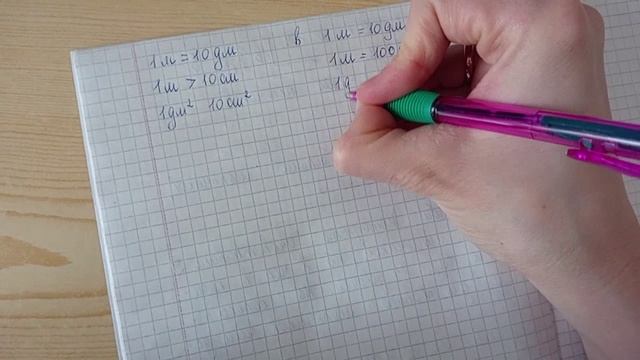 1 м = 10 дм
1 м > 10 см
1 дм² 10 см²
в 1 м = 10 дм
1 м = 100
1 д